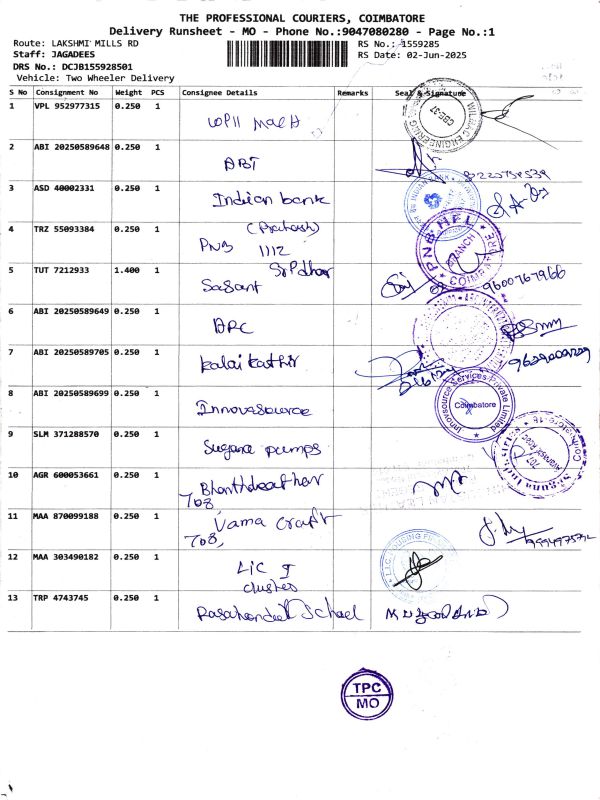 THE PROFESSIONAL COURIERS, COIMBATORE
Delivery Runsheet - MO - Phone No.:9047080280 - Page No.:1
Route: LAKSHMI MILLS RD RS No.: 1559285
Staff: JAGADEES RS Date: 02-Jun-2025
DRS No.: DCJB155928501
Vehicle: Two Wheeler Delivery
S No Consignment No Weight PCS Consignee Details Remarks Seal & Signature
1 VPL 952977315 0.250 1
CBE-37
ENGINEERING
2 ABI 20250589648 0.250 1 ABT
3 ASD 40002331 0.250 1 Indian bank
INDIAN BANK
4 TRZ 55093384 0.250 1 (Prakash)
PNB 1112
PNB HFL
BRANCH
COIMBATORE
5 TUT 7212933 1.400 1 Sridhar
Sasant 9600767966
6 ABI 20250589649 0.250 1 ARC
7 ABI 20250589705 0.250 1 Kalai Kathir
9629009229
8 ABI 20250589699 0.250 1 Innovasource
Innovsource Services Private Limited
Coimbatore
9 SLM 371288570 0.250 1 Suguna pumps
10 AGR 600053661 0.250 1
708,
11 MAA 870099188 0.250 1 Vama Craft
708,
12 MAA 303490182 0.250 1 LIC
13 TRP 4743745 0.250 1 School
TPC
MO